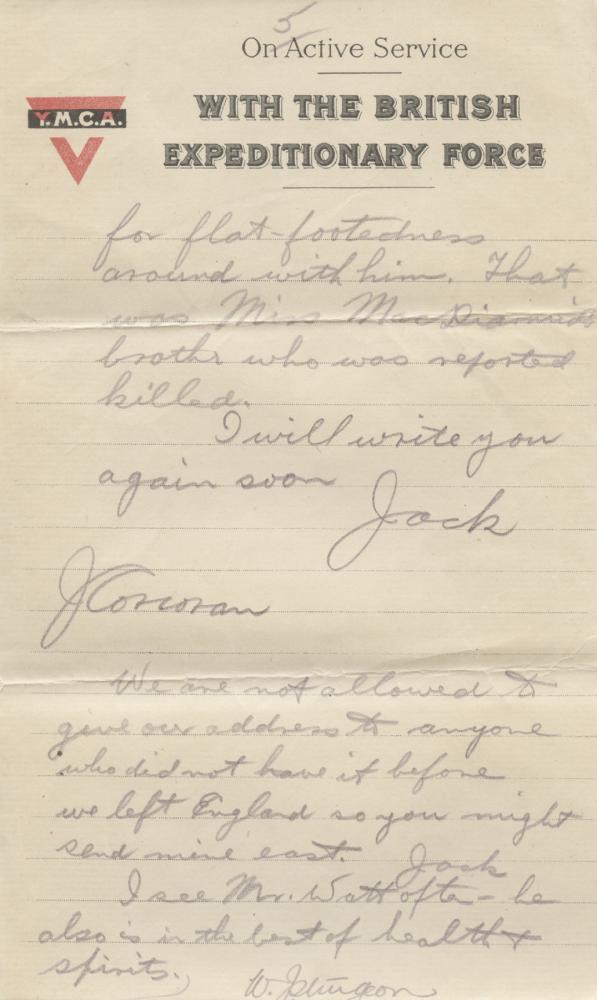 5
On Active Service
WITH THE BRITISH
EXPEDITIONARY FORCE
Y.M.C.A.
for flat-footedness
around with him. That
was Miss MacDiarmids
brothr who was reported
killed.
I will write you
again soon
Jack
J Corcoran
We are not allowed to
give our address to anyone
who did not have it before
we left England so you might
send mine east. Jack
I see Mr. Watt often - he
also is in the best of health &
spirits.
W.